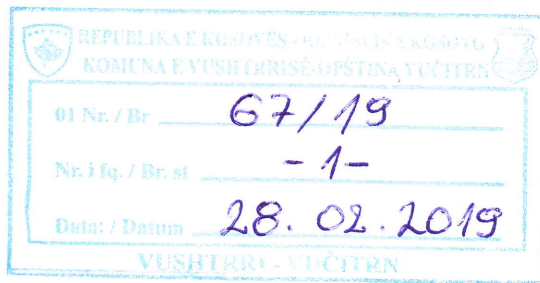 REPUBLIKA E KOSOVËS - REPUBLIKA KOSOVO
KOMUNA E VUSHTRRISË-OPŠTINA VUČITRN
01 Nr. / Br 67/19
Nr. i fq. / Br. st -1-
Data: / Datum 28. 02. 2019
VUSHTRRI - VUČITRN